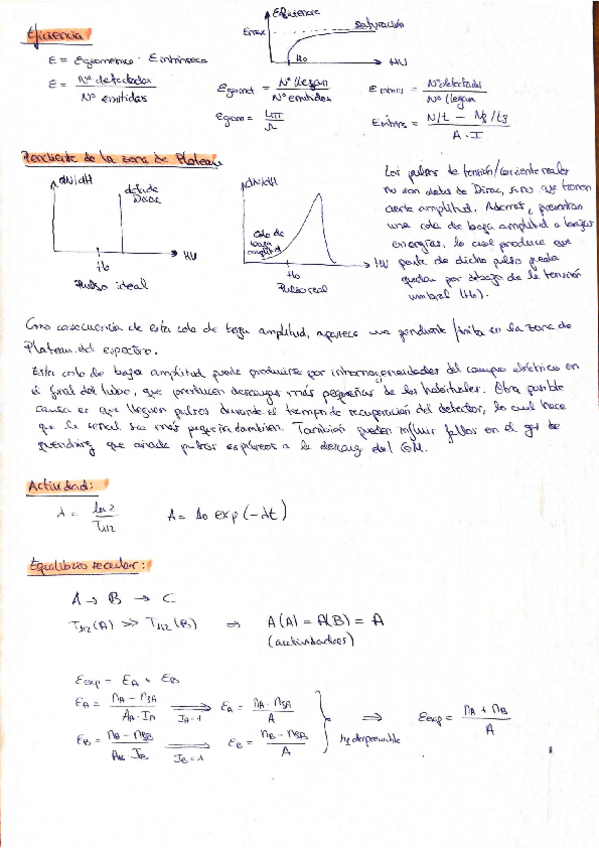 Eficiencia
Eficiencia
Emax
saturación
H₀
HV
E = Egeometrica · Eintrinseca
E = Nº detectadas / Nº emitidas
Egeomet = Nº llegan / Nº emitidas
Eintrins = Nº detectadas / Nº llegan
Egeom = 4π / Ω
Eintrins = N/t - NB/tB / A · I
Pendiente de la zona de Plateau
dN/dH
delta de
Dirac
H₀
HV
Pulso ideal
dN/dH
Cola de
baja
amplitud
H₀
HV
Pulso real
Los pulsos de tensión/corriente reales
no son deltas de Dirac, sino que tienen
cierta amplitud. Además, presentan
una cola de baja amplitud a bajas
energías, lo cual produce que
parte de dicho pulso pueda
quedar por debajo de la tensión
umbral (H₀).
Como consecuencia de esta cola de baja amplitud, aparece una pendiente finita en la zona de
Plateau del espectro.
Esta cola de baja amplitud puede producirse por inhomogeneidades del campo eléctrico en
el final del tubo, que producen descargas más pequeñas de las habituales. Otra posible
causa es que lleguen pulsos durante el tiempo de recuperación del detector, lo cual hace
que la señal sea más pequeña también. También pueden influir fallos en el gas de
quenching que añade pulsos espúreos a la descarga del GM.
Actividad:
λ = ln 2 / T1/2
A = A₀ exp(-λt)
Equilibrio secular:
A → B → C
T1/2(A) >> T1/2(B) ⇒ A(A) = A(B) = A
(actividades)
Eexp = EA + EB
EA = nA - nBA / AA · IA ⇒ IA=1 EA = nA - nBA / A
EB = nB - nBB / AB · IB ⇒ IB=1 EB = nB - nBB / A
nB despreciable
⇒ Eexp = nA + nB / A